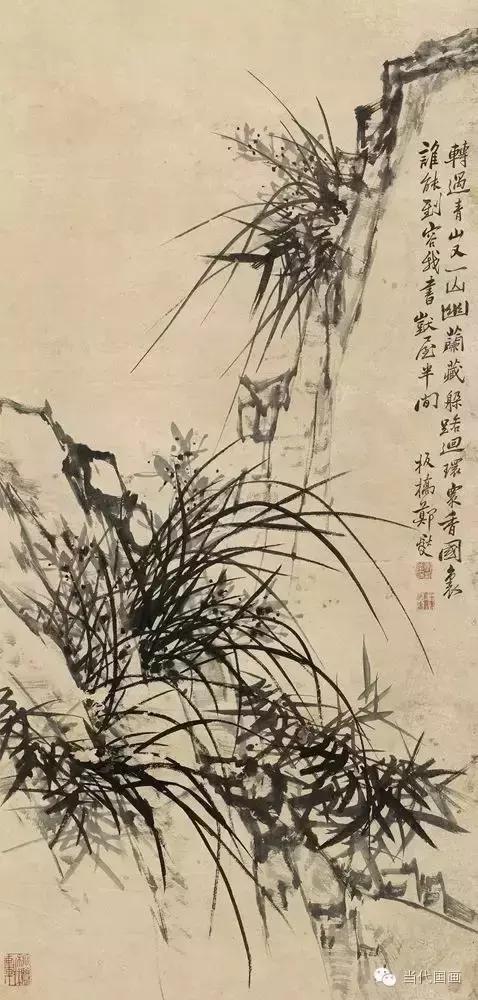 轉過青山又一山幽蘭藏躲路迴環衆香國裏
誰能到容我書獃屋半間
板橋鄭燮
当代国画